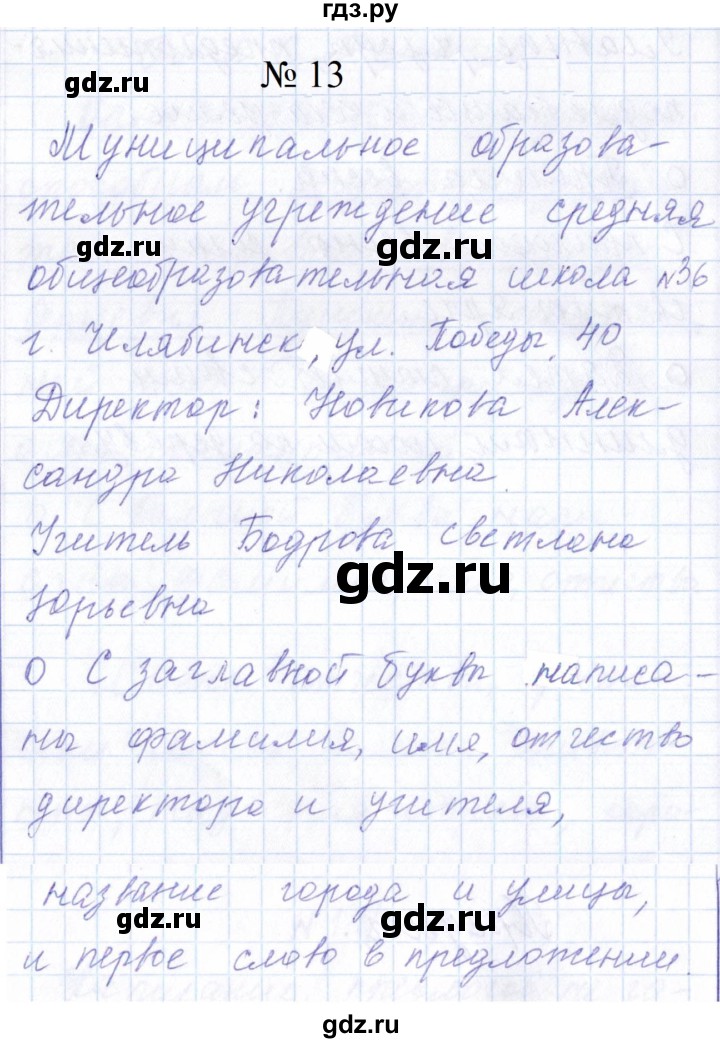 гдз.ру
gdz.ru
№ 13
Муниципальное образова-
тельное учреждение средняя
gdz.ru
gdz.ru
общеобразовательная школа №36
г. Челябинск, ул. Победы, 40
Директор: Новикова Алек-
сандра Николаевна.
Учитель Бодрова Светлана
gdz.ru
Юрьевна
О С заглавной буквы написа-
ны фамилия, имя, отчество
директора и учителя,
название города и улицы,
gdz.ru
gdz.ru
и первое слово в предложении.
gdz.ru